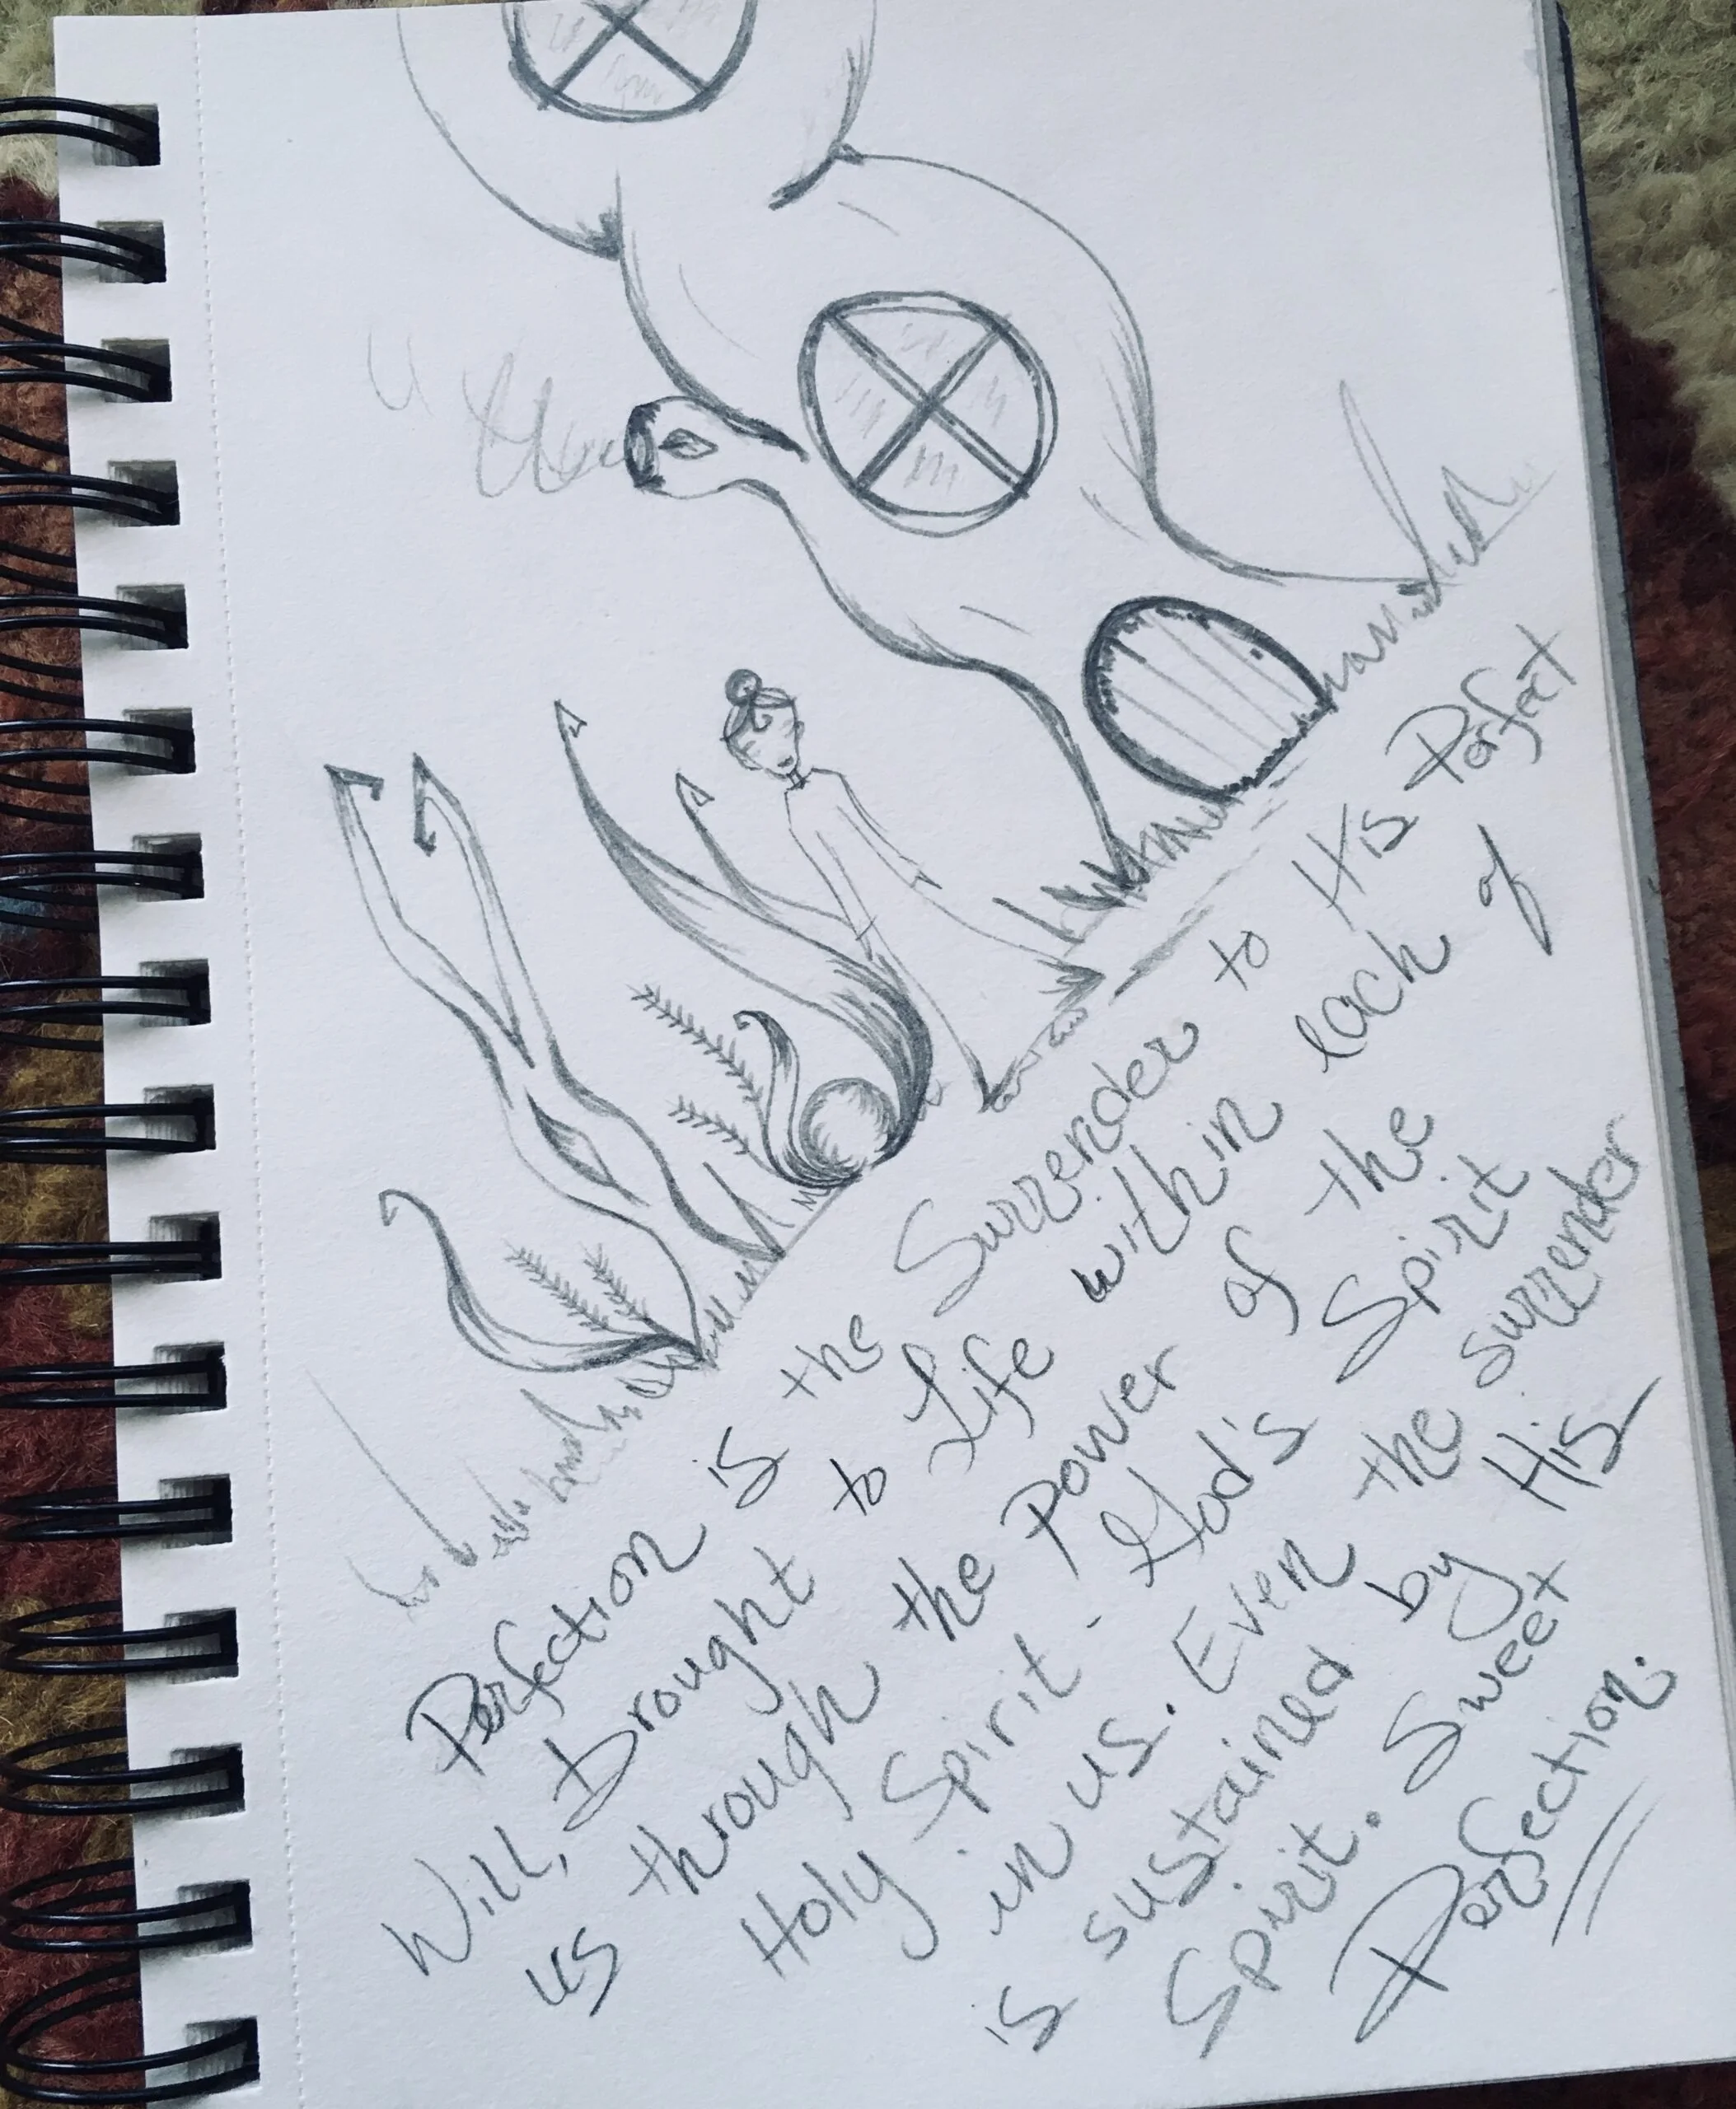 Perfection is the Surrender to His Perfect
Will, Brought to Life within lack of
us through the Power of the
Holy Spirit - God's Spirit
in us. Even the surrender
is sustained by His
Spirit. Sweet
Perfection.